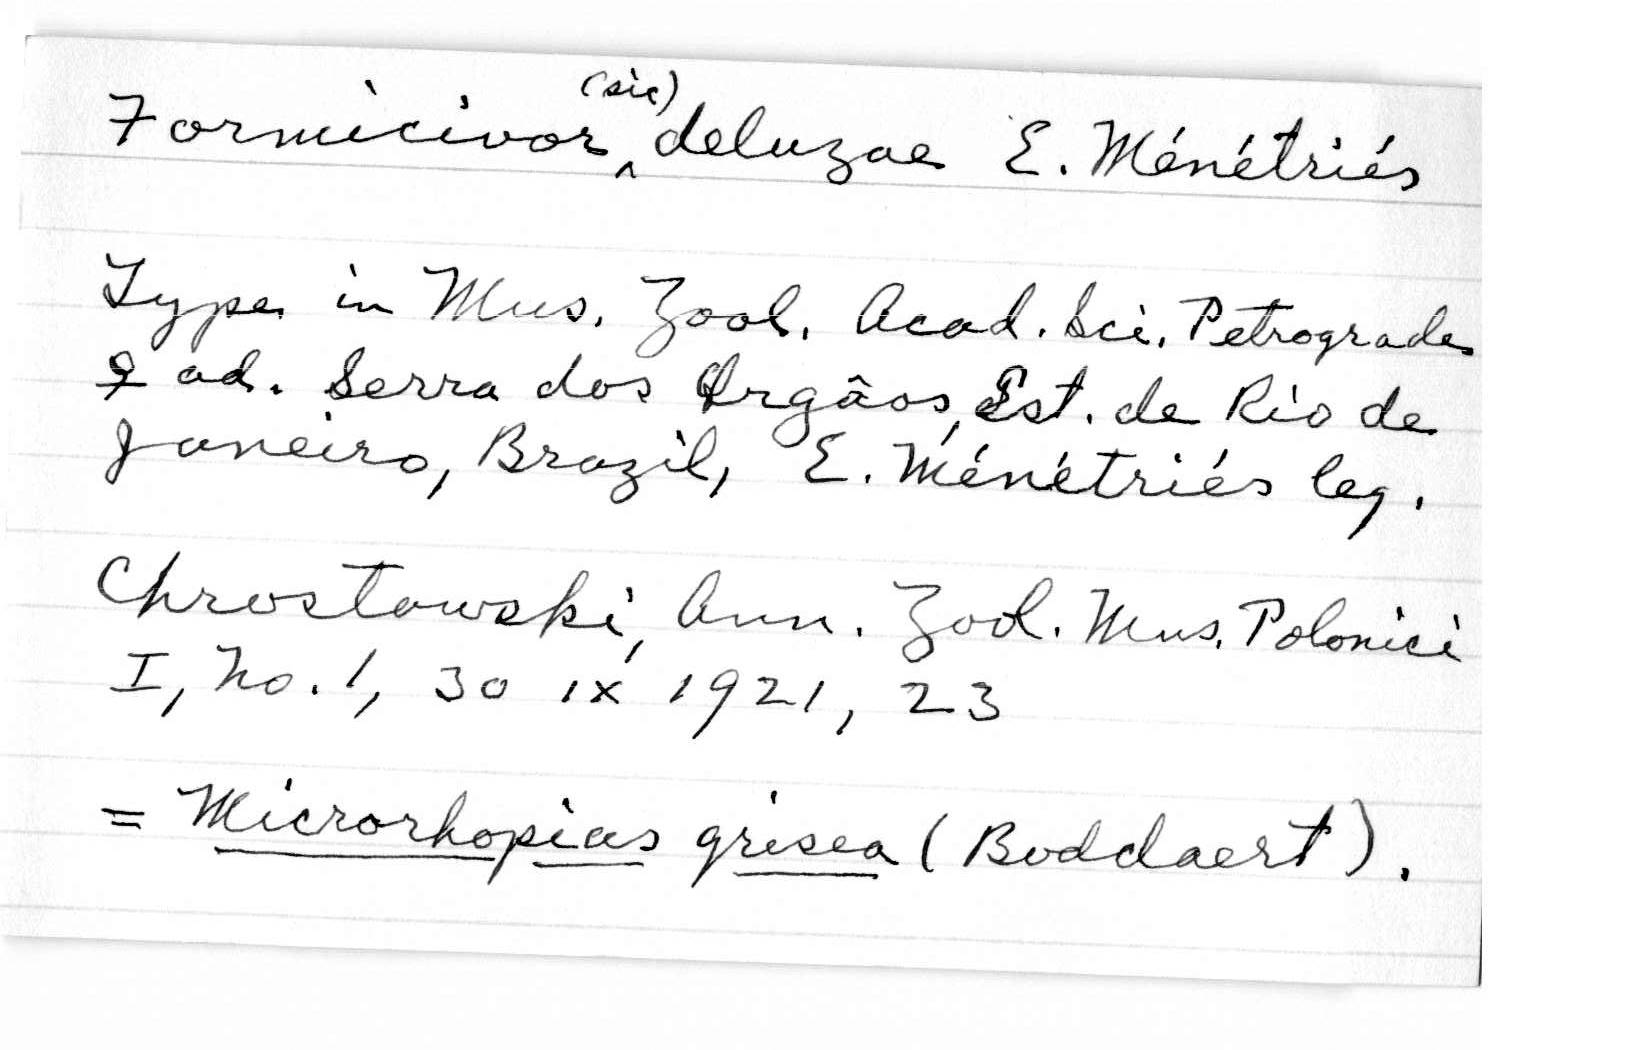 Formicivor (sic) deluzae E. Ménétriés
Type in Mus. Zool. Acad. Sci. Petrograde
♀ ad. Serra dos Orgâos, Est. de Rio de
Janeiro, Brazil, E. Ménétriés leg.
Chrostowski, Ann. Zool. Mus. Polonici
I, No. 1, 30 IX 1921, 23
= Microrhopias grisea (Boddaert).